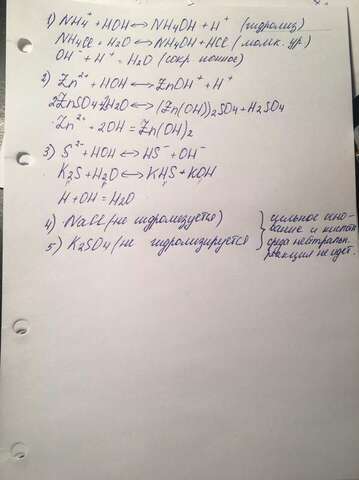 1) NH₄⁺ + HOH ⟷ NH₄OH + H⁺ (гидролиз)
NH₄Cl + H₂O ⟷ NH₄OH + HCl (молек. ур.)
OH⁻ + H⁺ = H₂O (сокр. ионное)
2) Zn²⁺ + HOH ⟷ ZnOH⁺ + H⁺
2ZnSO₄ + 2H₂O ⟷ (Zn(OH))₂SO₄ + H₂SO₄
Zn²⁺ + 2OH = Zn(OH)₂
3) S²⁻ + HOH ⟷ HS⁻ + OH⁻
K₂S + H₂O ⟷ KHS + KOH
H + OH = H₂O
4) NaCl (не гидролизуется)
5) K₂SO₄ (не гидролизируется
сильное осно-
вание и кислота
среда нейтральн.
реакция не идет.